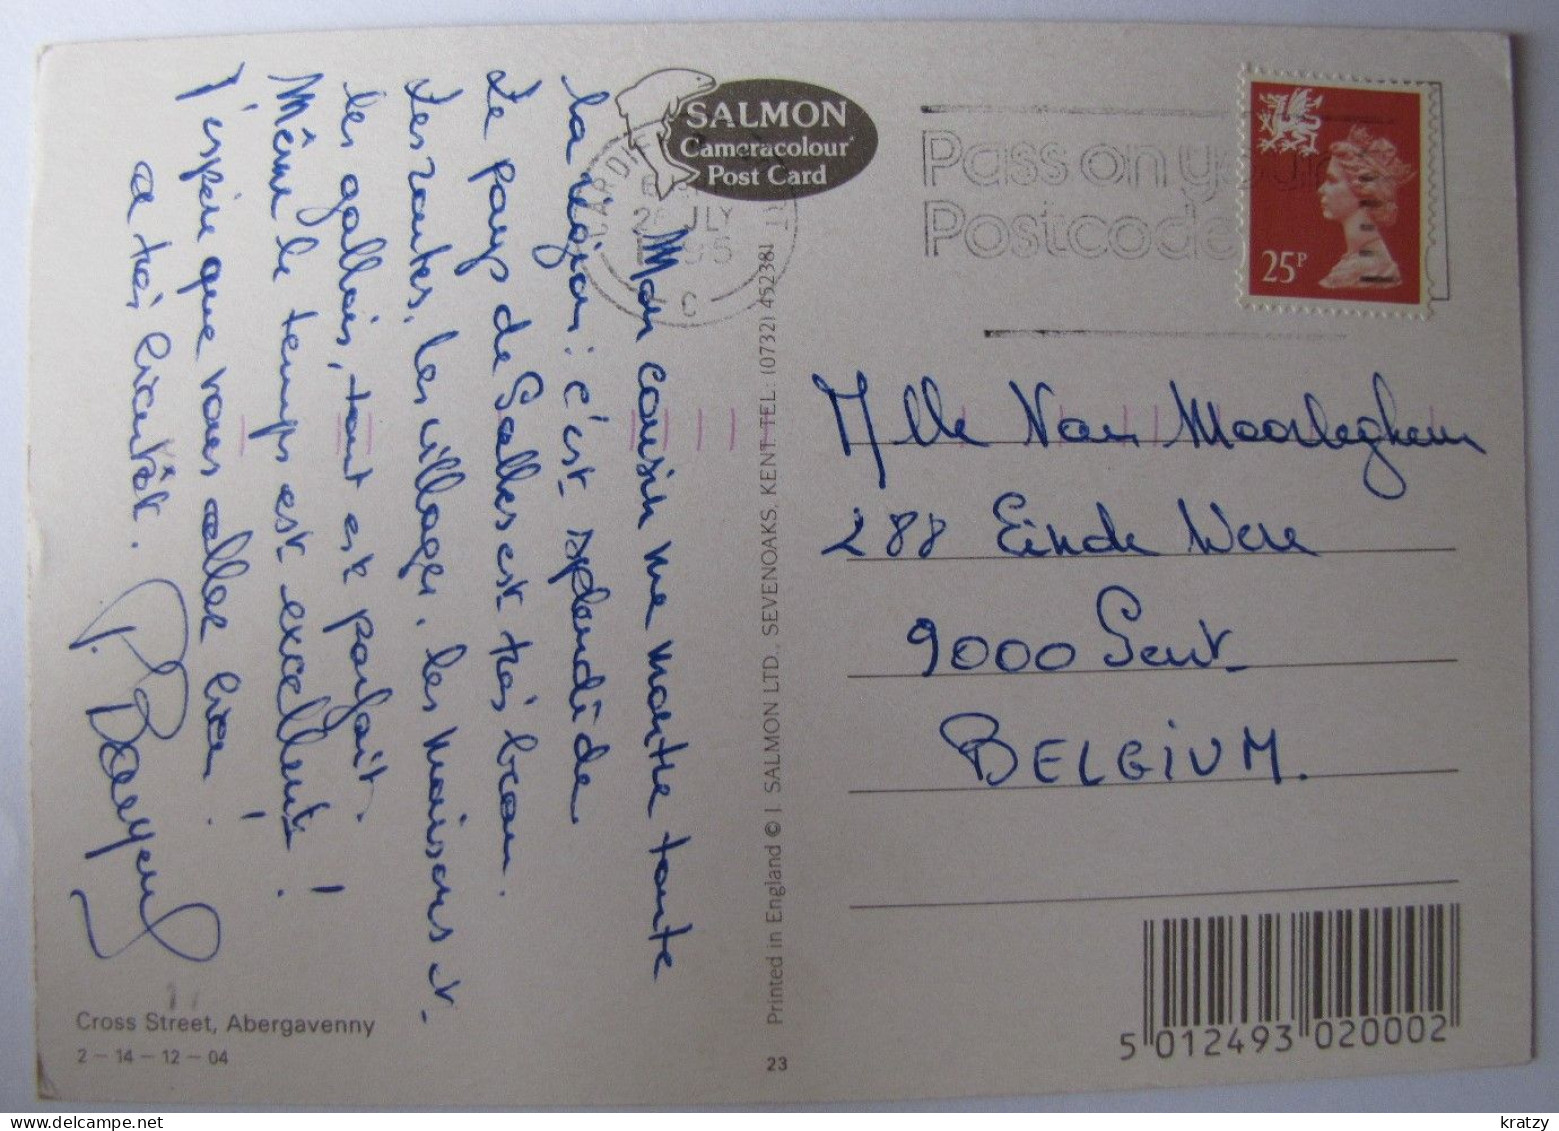 SALMON
Cameracolour
Post Card
CARDIFF
JLY
Pass on your
Postcode
25P
Mon cousin me montre toute
la région: c'est splendide
Le pays de Galles est très beau.
Les routes, les villages, les maisons et
les gallois, tout est parfait.
Même le temps est excellent!
J'espère que vous allez bien.
A très bientôt.
Mlle Van Moorleghem
288 Einde Were
9000 Gent
BELGIUM.
Printed in England © J. SALMON LTD., SEVENOAKS, KENT TEL: (0732) 452381
Cross Street, Abergavenny
2 – 14 – 12 – 04
23
5 012493 020002
kratzy